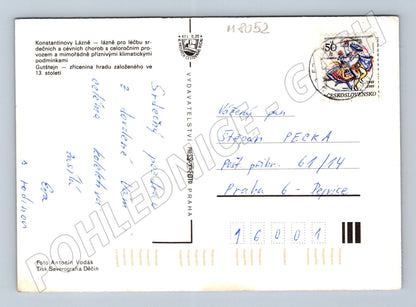 Konstantinovy Lázně — lázně pro léčbu sr-
dečních a cévních chorob s celoročním pro-
vozem a mimořádně příznivými klimatickými
podmínkami
Gutštejn — zřícenina hradu založeného ve
13. století
M 8052
50
ČESKOSLOVENSKO
VYDAVATELSTVÍ
PRAHA
Srdečný pozdrav
z dovolené Vám
zasílá
Eva
s rodinou
Vážený pan
Štěpán PECKA
Pošt. přihr. 61/14
Praha 6 - Dejvice
16001
Foto Antonín Vodák
Tisk Severografia Děčín
POHLEDNICE -